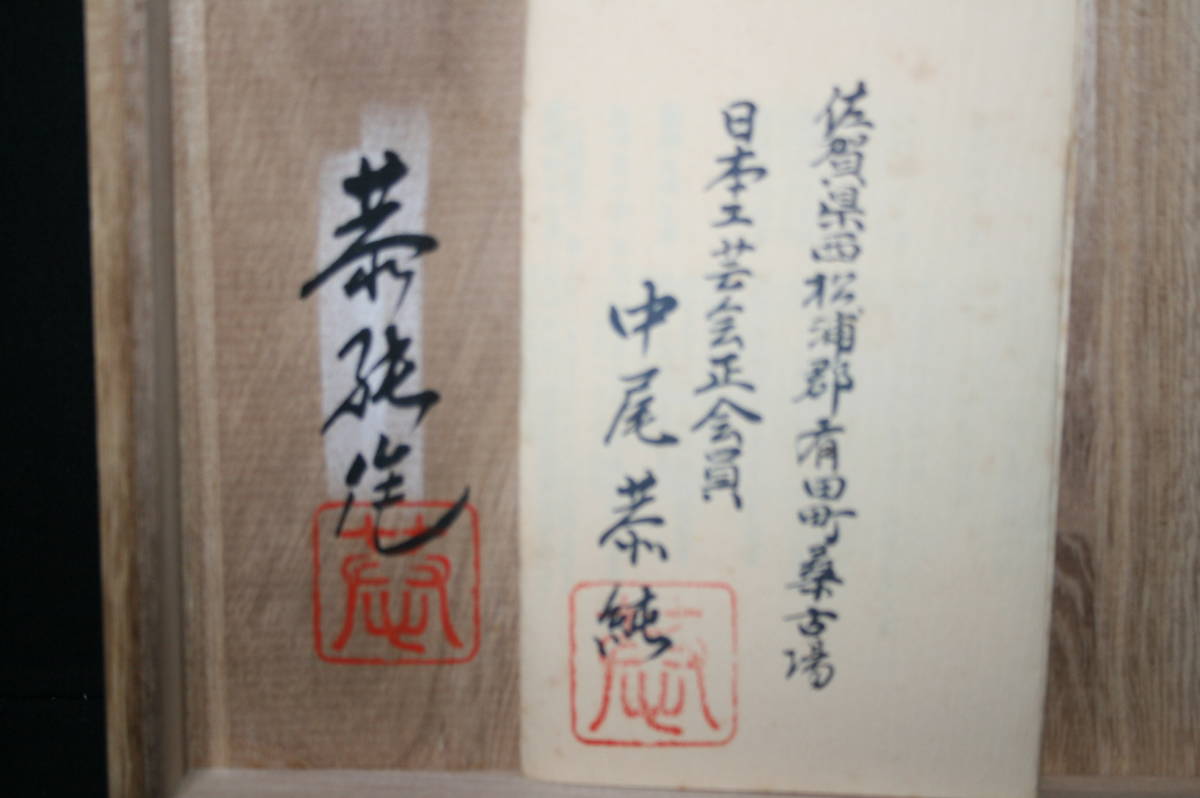 佐賀県西松浦郡有田町桑古場
日本工芸会正会員
中尾恭純
恭純作
恭
恭